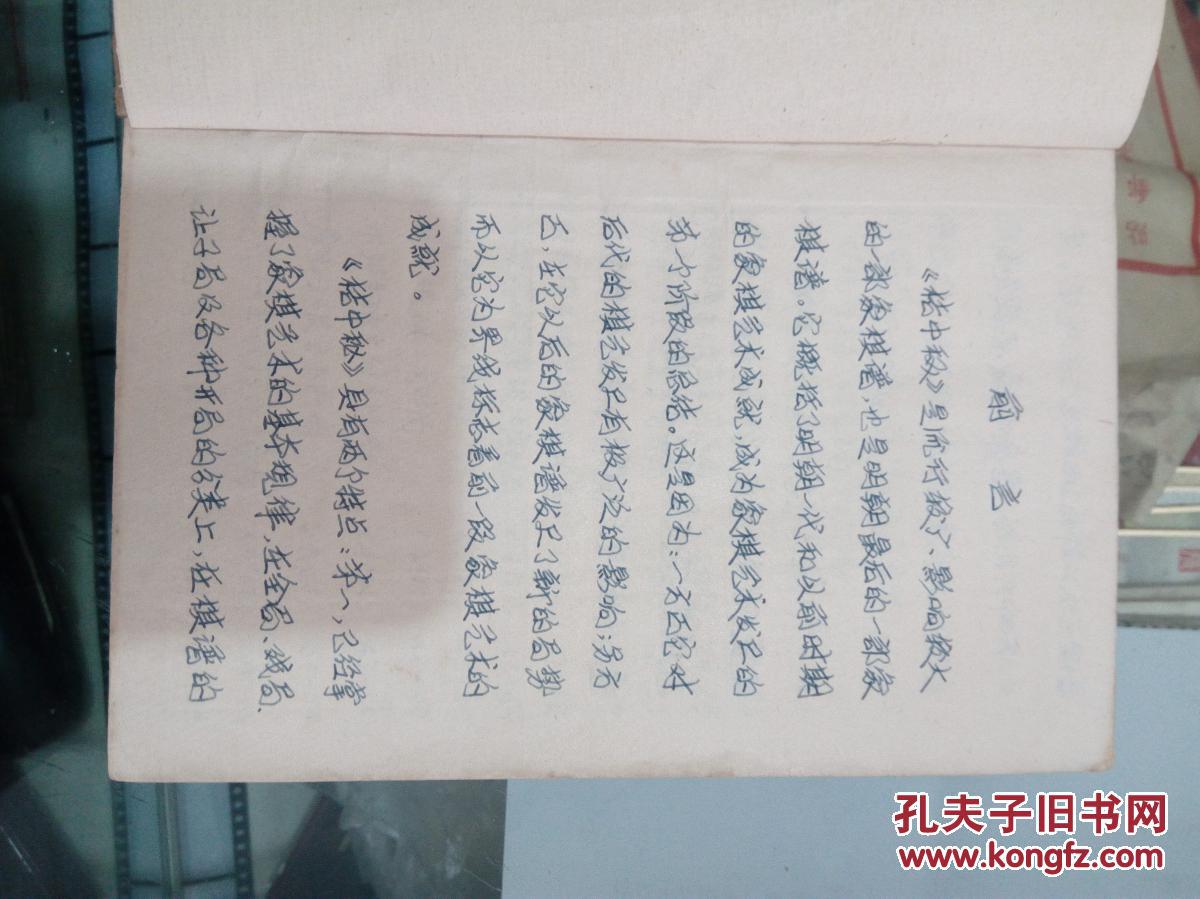 前言
《桔中秘》是流行极广、影响极大
的一部象棋谱，也是明朝最后的一部象
棋谱。它概括了明朝一代和以前时期
的象棋艺术成就，成为象棋艺术发展的
第一个阶段的总结。这是因为：一方面它对
后代的棋艺发展有极广泛的影响；另方
面，在它以后的象棋谱发展了新的局势
而从它为界线标志着前一段象棋艺术的
成就。
《桔中秘》具有两个特点：第一，已经掌
握了象棋艺术的基本规律，在全局、残局、
让子局及各种开局的分类上，在棋谱的
孔夫子旧书网
www.kongfz.com